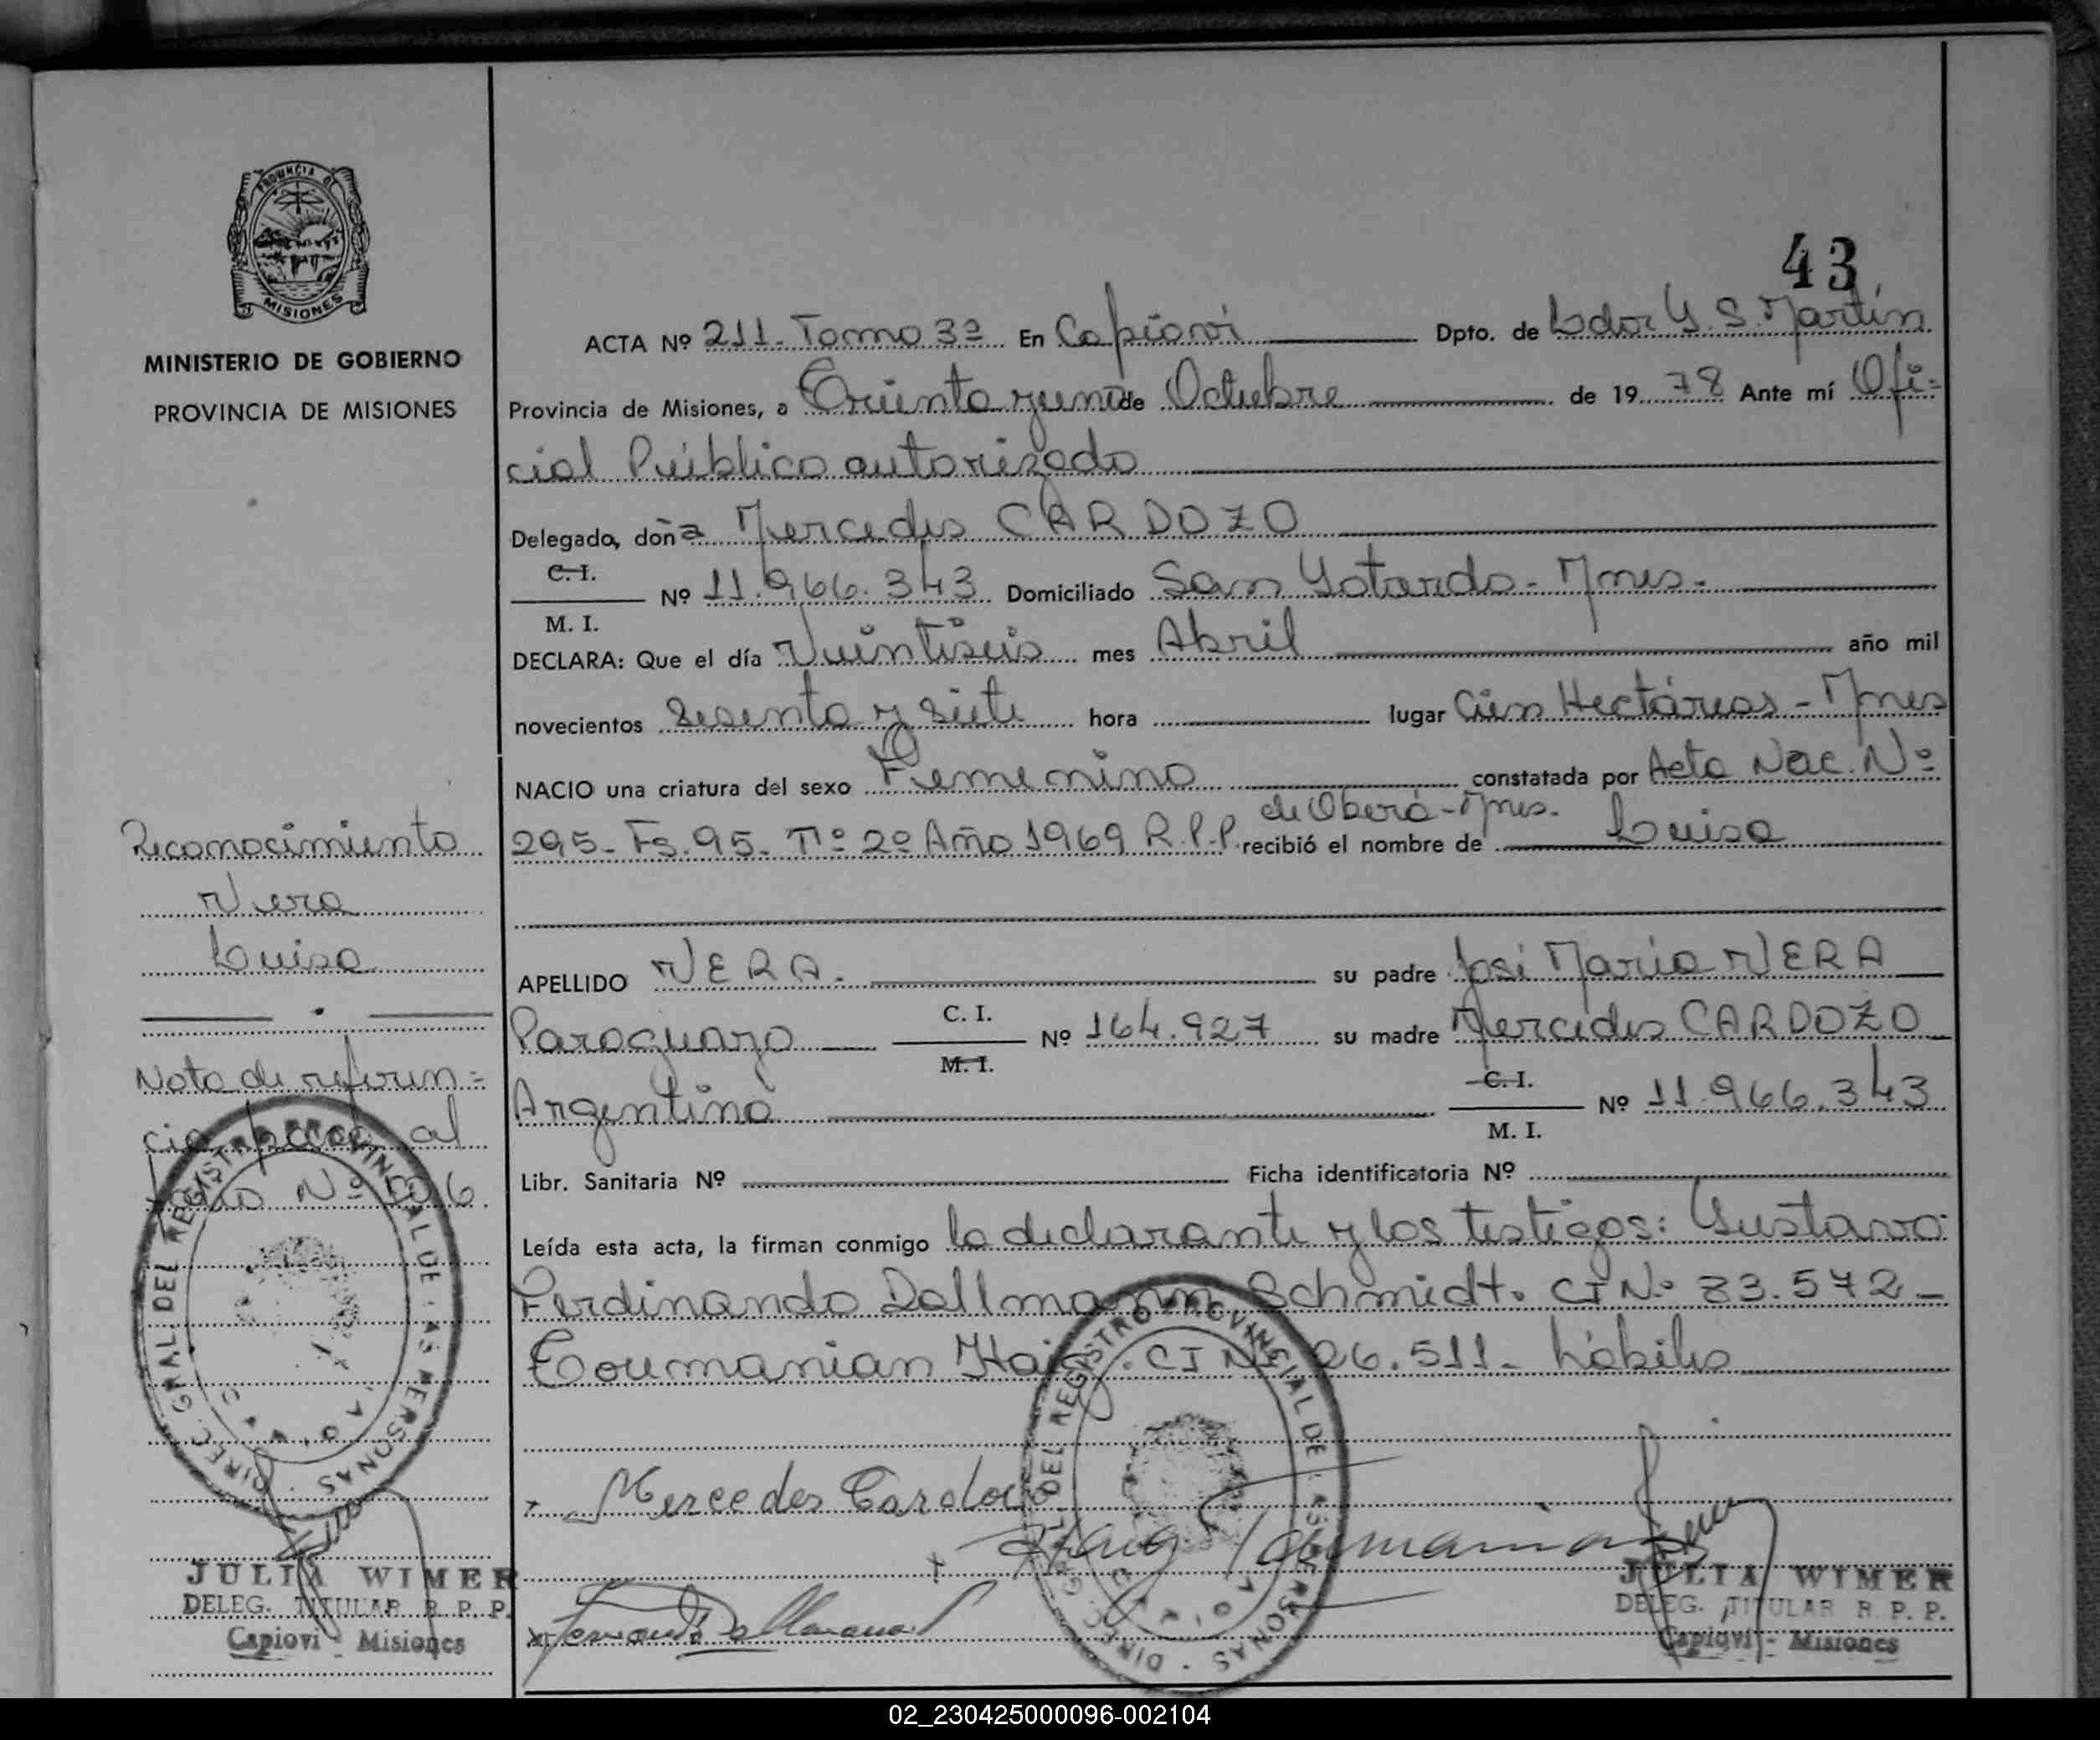 PROVINCIA DE
MISIONES
MINISTERIO DE GOBIERNO
PROVINCIA DE MISIONES
43
ACTA Nº 211 - Tomo 3º En Capioví Dpto. de Ldor G. S. Martín
Provincia de Misiones, a Treinta y uno de Octubre de 19 78 Ante mí Ofi=
cial Público autorizado
Delegado, doña Mercedes CARDOZO
C. I.
Nº 11.966.343 Domiciliado San Gotardo - Mnes -
M. I.
DECLARA: Que el día Veintiseis mes Abril año mil
novecientos Sesenta y siete hora lugar Cien Hectáreas - Mnes
NACIO una criatura del sexo Femenino constatada por Acta Nac. Nº
295 - Fs. 95 - Tº 2º Año 1969 R.P.P. de Oberá - Mnes. recibió el nombre de Luisa
APELLIDO VERA. su padre José María VERA
Paraguayo C. I. Nº 164.927 su madre Mercedes CARDOZO
M. I.
Argentina C. I. Nº 11.966.343
M. I.
Libr. Sanitaria Nº Ficha identificatoria Nº
Leída esta acta, la firman conmigo la declarante y los testigos: Gustavo
Ferdinando Dallmann Schmidt. CI Nº 83.572 -
Toumanian Haig. CI Nº 26.511 - hábiles
Mercedes Cardozo
Haig Toumanian
JULIA WIMER
DELEG. TITULAR R. P. P.
Capioví - Misiones
Reconocimiento
Vera
Luisa
Nota de referen=
cia pasa al
folio Nº
DIREC. GRAL. DEL REGISTRO PROVINCIAL DE LAS PERSONAS
JULIA WIMER
DELEG. TITULAR R. P. P.
Capioví - Misiones
DIREC. GRAL. DEL REGISTRO PROVINCIAL DE LAS PERSONAS
02_230425000096-002104